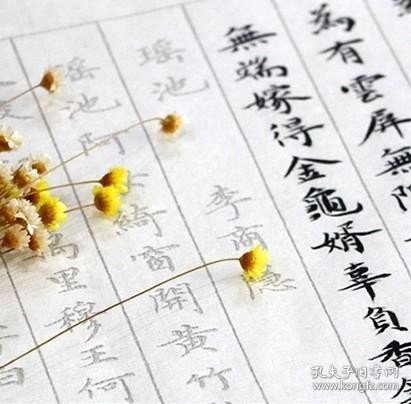 為有雲屏無限
無端嫁得金龜婿辜負香衾
瑤池 李商隱
瑤池阿母綺窗開黃竹
萬里穆王何
孔夫子旧书网
www.kongfz.com